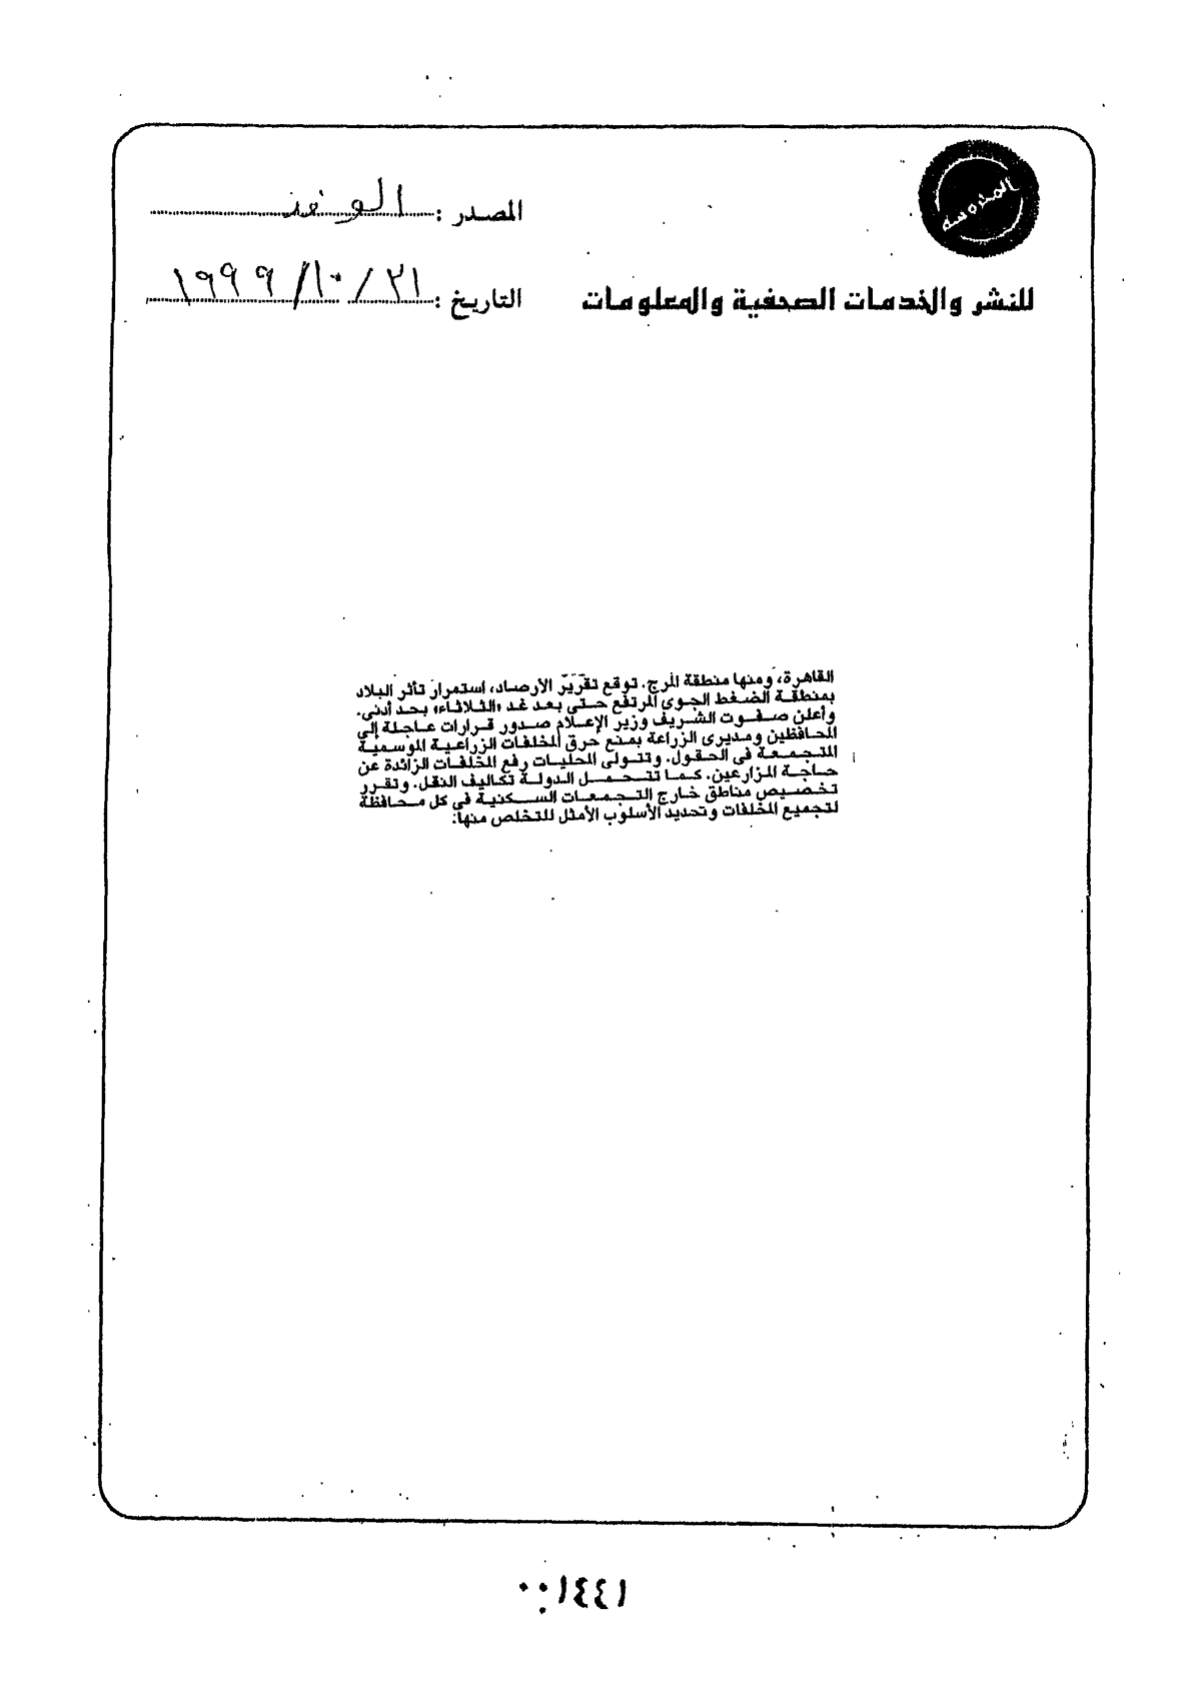 المحروسة
المصدر : الوفد
للنشر والخدمات الصحفية والمعلومات
التاريخ : ٣١ / ١٠ / ١٩٩٩
القاهرة، ومنها منطقة المرج. توقع تقرير الأرصاد، استمرار تأثر البلاد
بمنطقة الضغط الجوى المرتفع حتى بعد غد «الثلاثاء» بحد أدنى.
وأعلن صفوت الشريف وزير الإعلام صدور قرارات عاجلة إلى
المحافظين ومديرى الزراعة بمنع حرق المخلفات الزراعية الموسمية
المتجمعة فى الحقول. وتتولى المحليات رفع المخلفات الزائدة عن
حاجة المزارعين. كما تتحمل الدولة تكاليف النقل. وتقرر
تخصيص مناطق خارج التجمعات السكنية فى كل محافظة
لتجميع المخلفات وتحديد الأسلوب الأمثل للتخلص منها.
٠٠١٤٤١